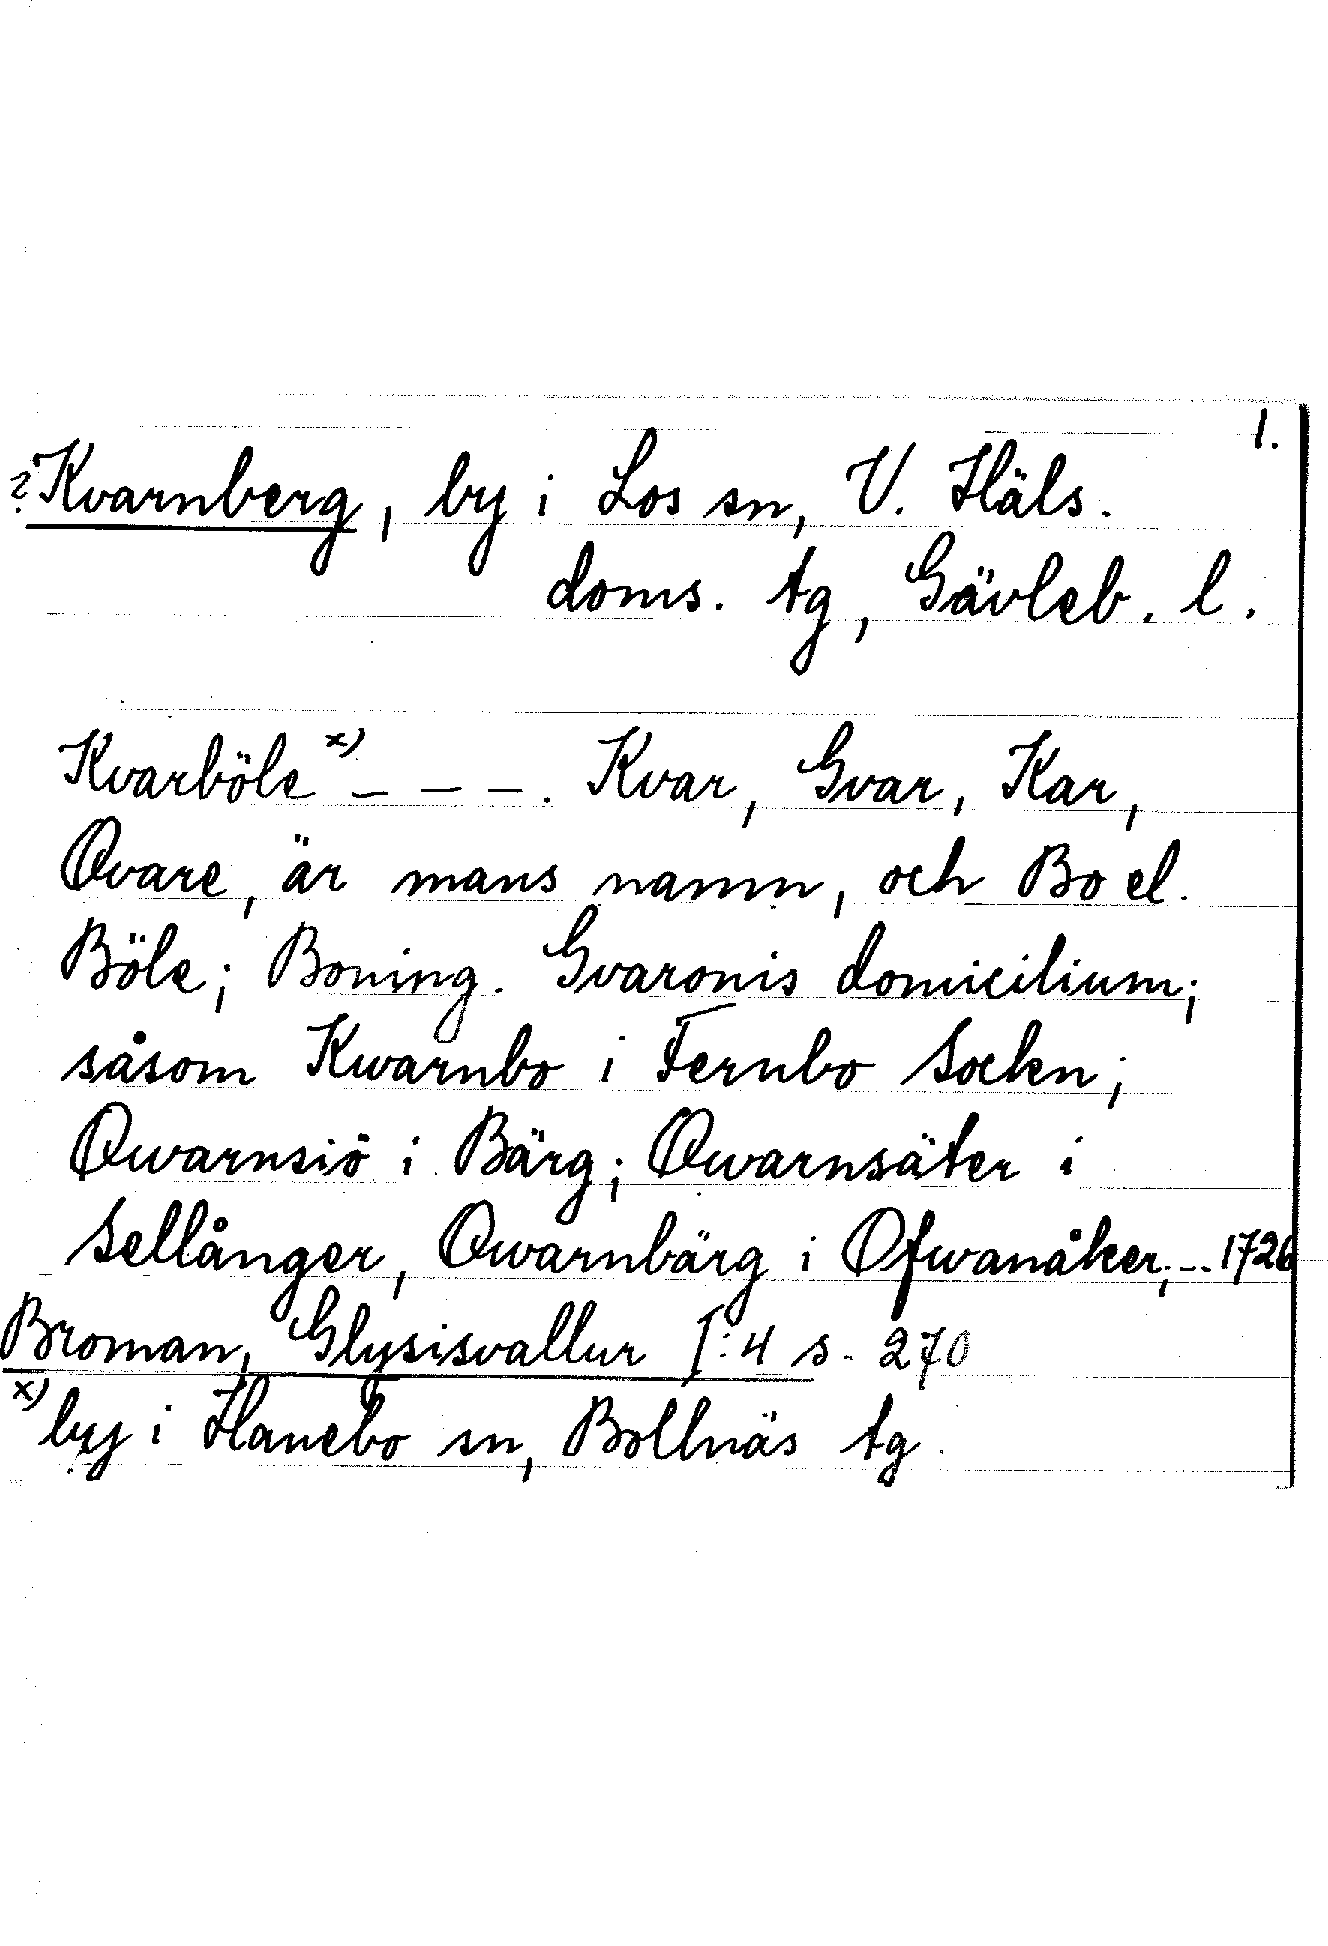 1.
?Kvarnberg, by i Los sn, V. Häls.
doms. tg, Gävleb. l.
Kvarböle x) – – –. Kvar, Gvar, Kar,
Qvare, är mans namn, och Bo el.
Böle; Boning. Gvaronis domicilium;
såsom Kwarnbo i Fernbo Sockn;
Qwarnsiö i Bärg; Qwarnsäter i
Sellånger, Qwarnbärg i Ofwanåker; –.. 1726
Broman, Glysisvallur I:4 s. 270
x) by i Hanebo sn, Bollnäs tg.